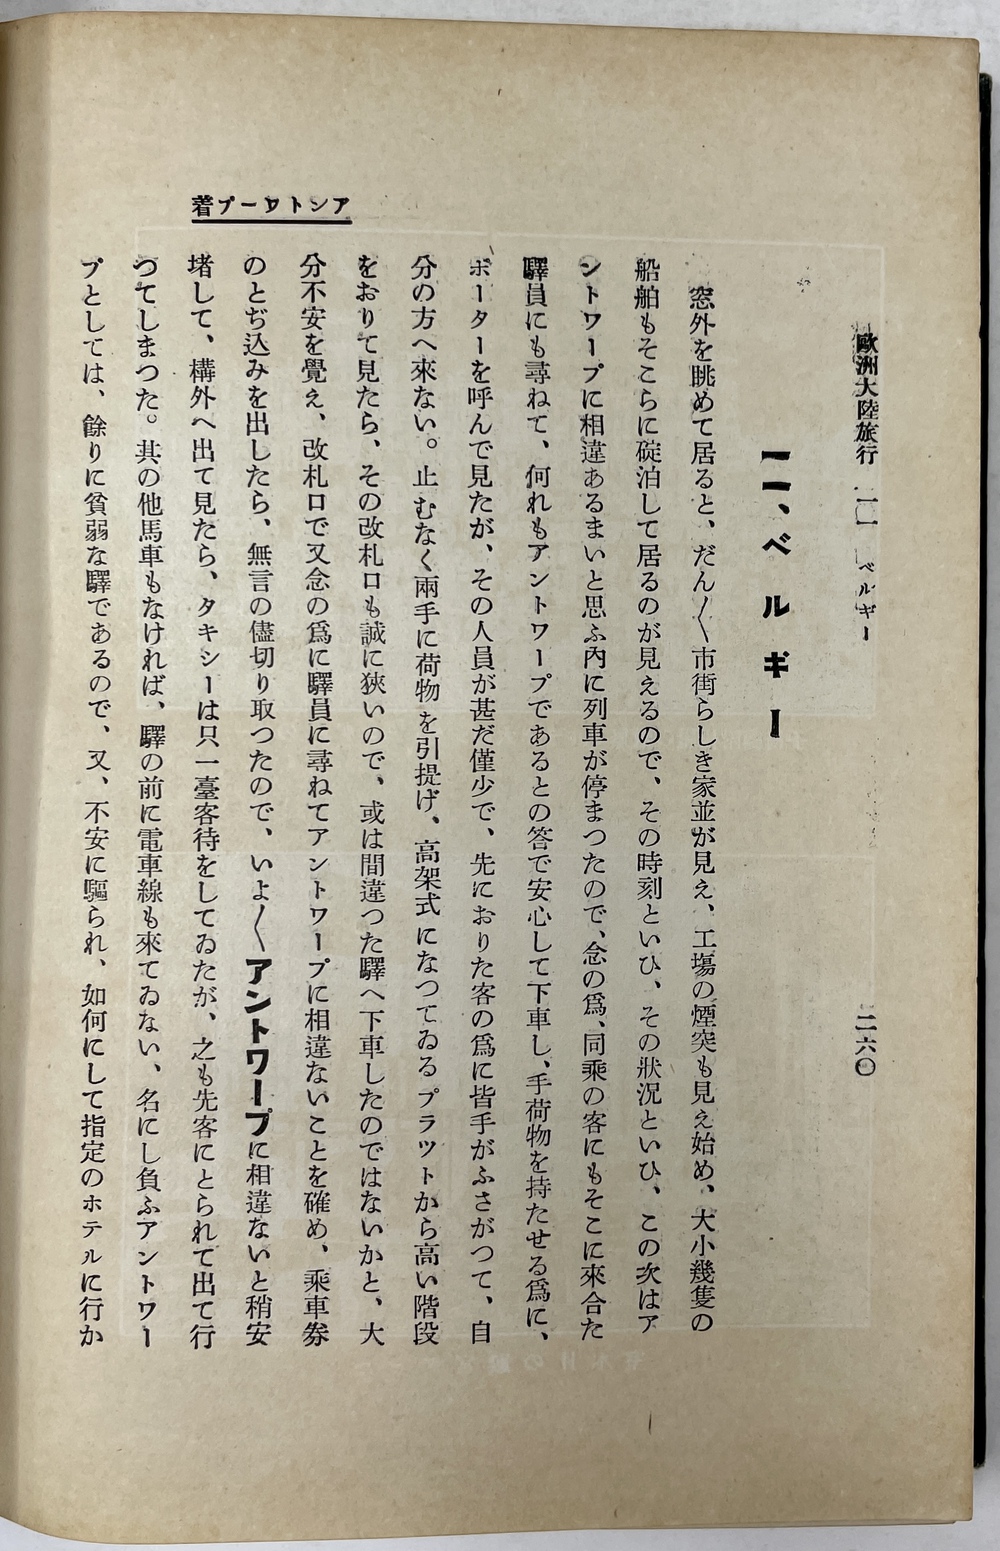 歐洲大陸旅行 二一 ベルギー
二六〇
二一、ベルギー
アントワープ着
窓外を眺めて居ると、だん〱市街らしき家並が見え、工塲の煙突も見え始め、大小幾隻の
船舶もそこらに碇泊して居るのが見えるので、その時刻といひ、その狀況といひ、この次はア
ントワープに相違あるまいと思ふ內に列車が停まつたので、念の爲、同乘の客にもそこに來合た
驛員にも尋ねて、何れもアントワープであるとの答で安心して下車し、手荷物を持たせる爲に、
ポーターを呼んで見たが、その人員が甚だ僅少で、先におりた客の爲に皆手がふさがつて、自
分の方へ來ない。止むなく兩手に荷物を引提げ、高架式になつてゐるプラツトから高い階段
をおりて見たら、その改札口も誠に狹いので、或は間違つた驛へ下車したのではないかと、大
分不安を覺え、改札口で又念の爲に驛員に尋ねてアントワープに相違ないことを確め、乘車券
のとぢ込みを出したら、無言の儘切り取つたので、いよ〱アントワープに相違ないと稍安
堵して、構外へ出て見たら、タキシーは只一臺客待をしてゐたが、之も先客にとられて出て行
つてしまつた。其の他馬車もなければ、驛の前に電車線も來てゐない、名にし負ふアントワー
プとしては、餘りに貧弱な驛であるので、又、不安に驅られ、如何にして指定のホテルに行か